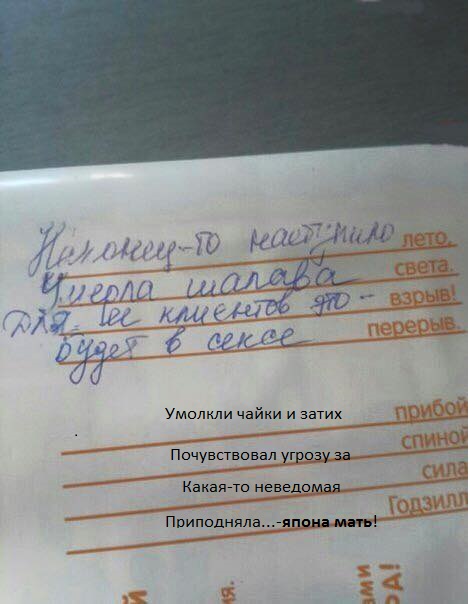 Наконец-то наступило лето,
Умерла шалава света.
Для ее клиентов это - взрыв!
Будет в сексе перерыв.
Умолкли чайки и затих прибой
Почувствовал угрозу за спиной
Какая-то неведомая сила
Приподняла...-япона мать! Годзилл